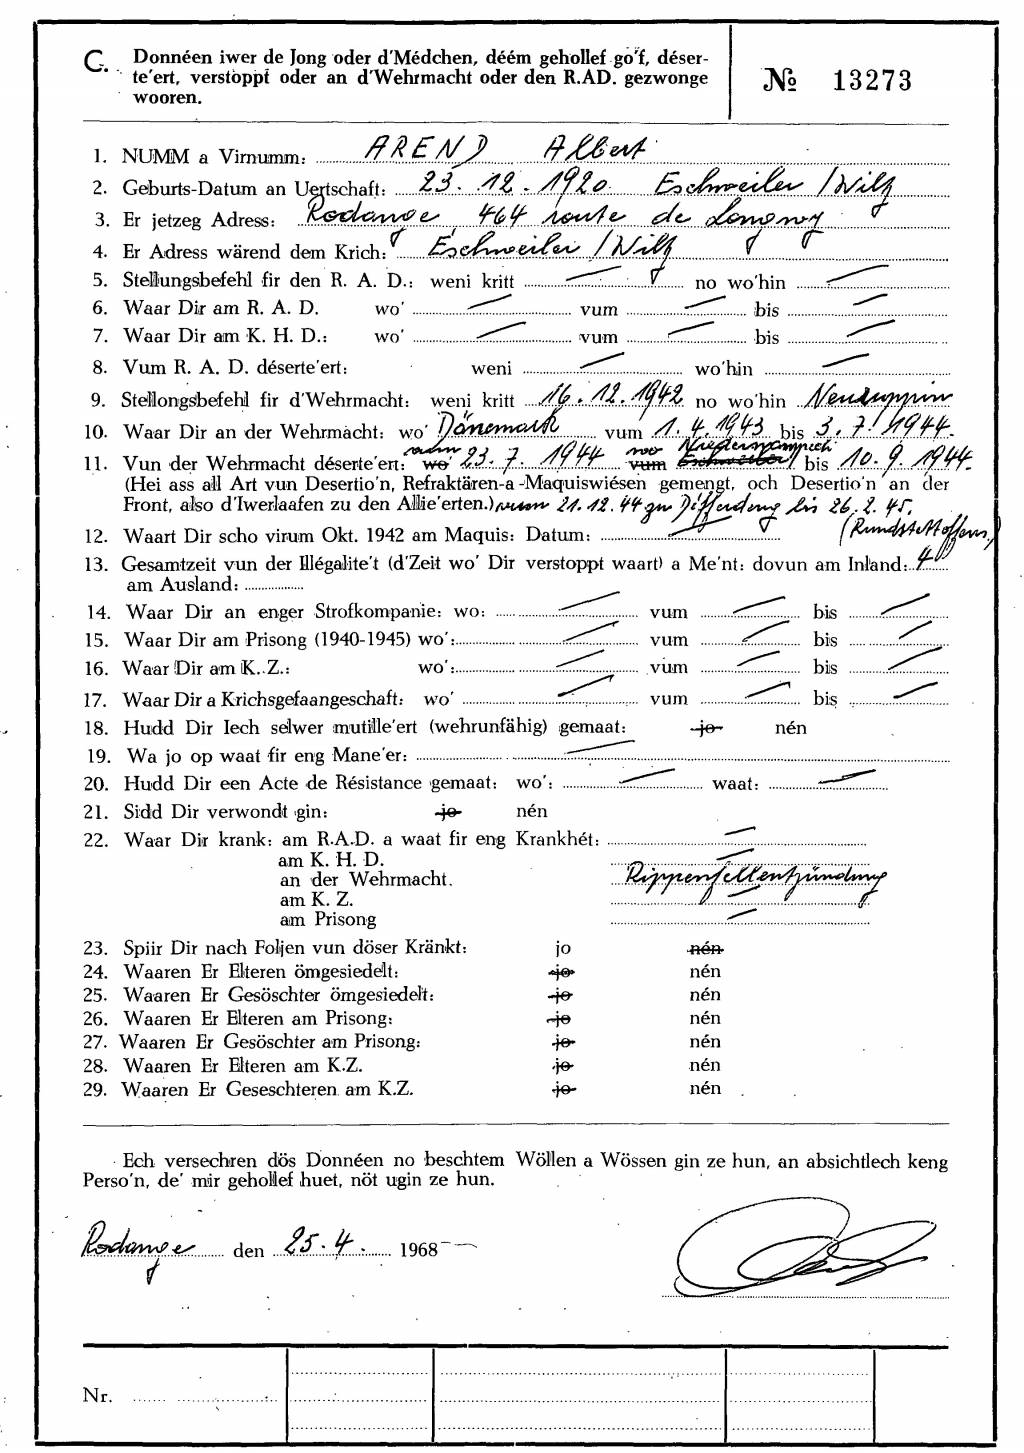 C. Donnéen iwer de Jong oder d'Médchen, déém gehollef go'f, déser-
te'ert, verstoppt oder an d'Wehrmacht oder den R.AD. gezwonge
wooren.
№ 13273
1. NUMM a Virnumm: AREND Albert
2. Geburts-Datum an Uertschaft: 23.12.1920 Eschweiler /Wilz
3. Er jetzeg Adress: Rodange 464 route de Longwy
4. Er Adress wärend dem Krich: Eschweiler /Wilz
5. Stellungsbefehl fir den R. A. D.: weni kritt no wo'hin
6. Waar Dir am R. A. D. wo' vum bis
7. Waar Dir am K. H. D.: wo' vum bis
8. Vum R. A. D. déserte'ert: weni wo'hin
9. Stellongsbefehl fir d'Wehrmacht: weni kritt 16.12.1942 no wo'hin Neuruppin
10. Waar Dir an der Wehrmacht: wo' Dänemark vum 1.4.1943 bis 3.7.1944.
11. Vun der Wehrmacht déserte'ert: wo' vum 23.7.1944 vum wo Niederwampech Eschweiler bis 10.9.1944.
(Hei ass all Art vun Desertio'n, Refraktären-a-Maquiswiésen gemengt, och Desertio'n an der
Front, also d'Iwerlaafen zu den Allie'erten.) vum 21.12.44 zu Differdang bis 26.2.45.
(Rundstettoffens.)
12. Waart Dir scho virum Okt. 1942 am Maquis: Datum:
13. Gesamtzeit vun der Illégalite't (d'Zeit wo' Dir verstoppt waart) a Me'nt: dovun am Inland: 4
am Ausland:
14. Waar Dir an enger Strofkompanie: wo: vum bis
15. Waar Dir am Prisong (1940-1945) wo': vum bis
16. Waar Dir am K. Z.: wo': vum bis
17. Waar Dir a Krichsgefaangeschaft: wo' vum bis
18. Hudd Dir Iech selwer mutille'ert (wehrunfähig) gemaat: jo nén
19. Wa jo op waat fir eng Mane'er:
20. Hudd Dir een Acte de Résistance gemaat: wo': waat:
21. Sidd Dir verwondt gin: jo nén
22. Waar Dir krank: am R.A.D. a waat fir eng Krankhét:
am K. H. D.
an der Wehrmacht. Rippenfellentzündung
am K. Z.
am Prisong
23. Spiir Dir nach Foljen vun döser Kränkt: jo nén
24. Waaren Er Elteren ömgesiedelt: jo nén
25. Waaren Er Gesöschter ömgesiedelt: jo nén
26. Waaren Er Elteren am Prisong: jo nén
27. Waaren Er Gesöschter am Prisong: jo nén
28. Waaren Er Elteren am K.Z. jo nén
29. Waaren Er Geseschteren am K.Z. jo nén
Ech versechren dös Donnéen no beschtem Wöllen a Wössen gin ze hun, an absichtlech keng
Perso'n, de' mir gehollef huet, nöt ugin ze hun.
Rodange den 25.4. 1968
Nr.